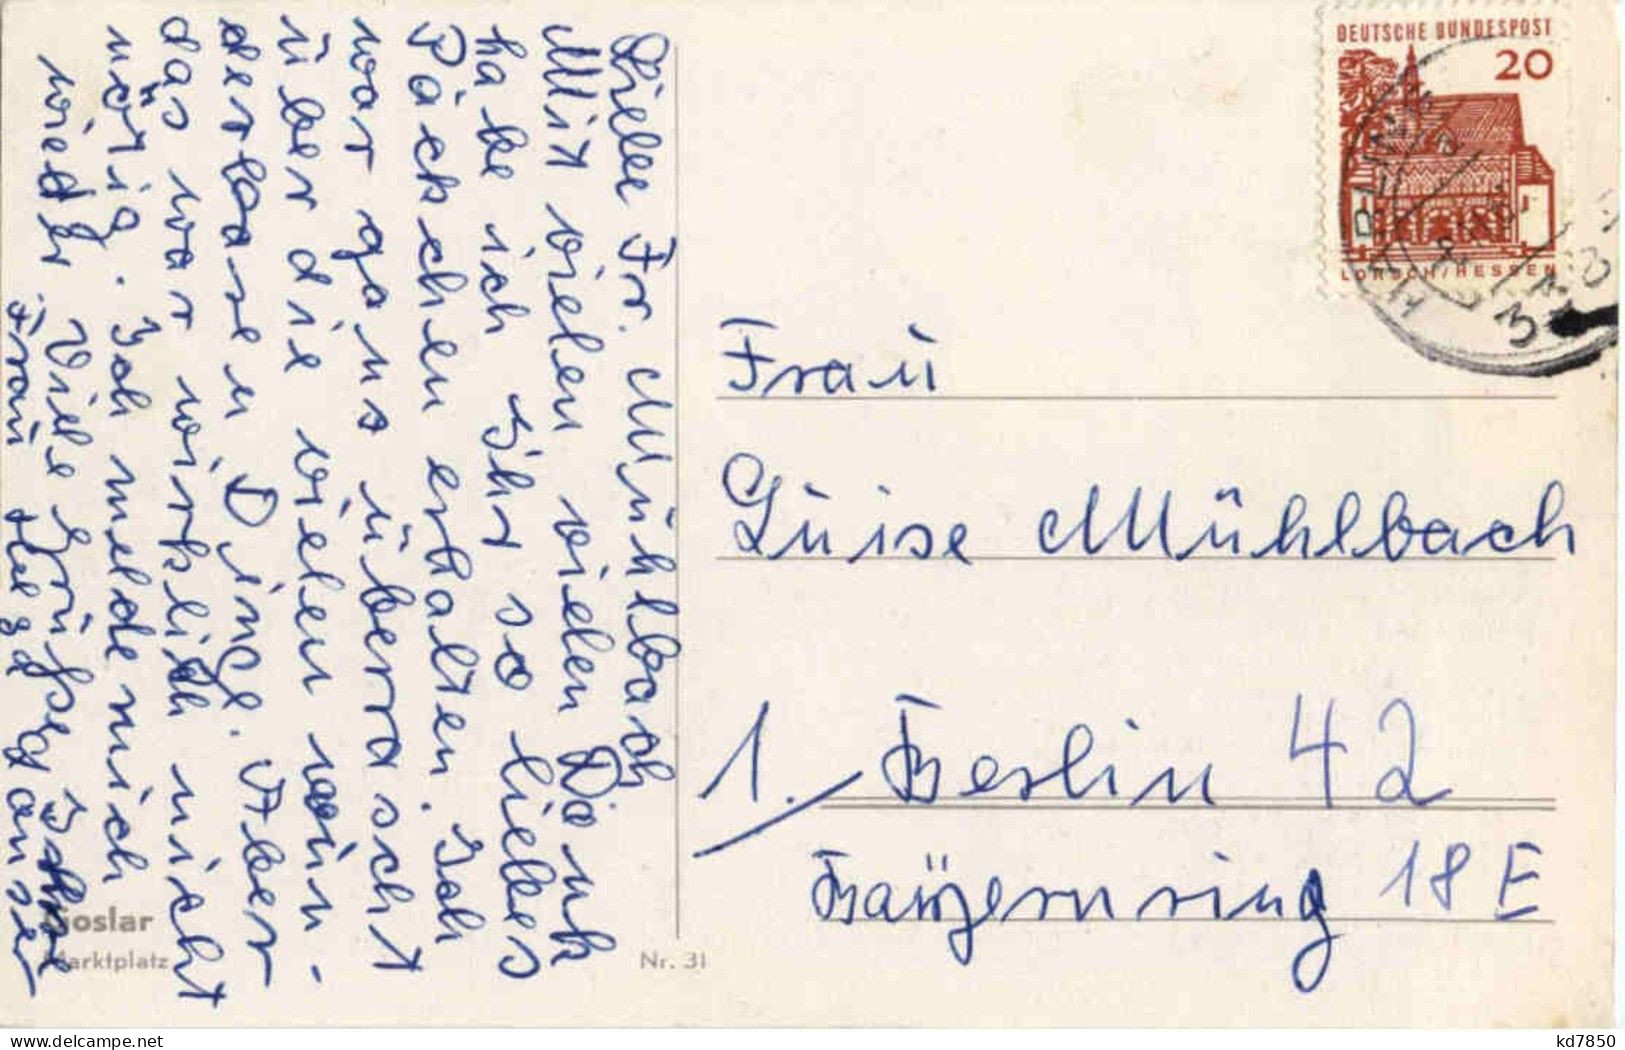 Liebe Fr. Mühlbach
Mit vielen vielen Dank
habe ich Ihr so liebes
Päckchen erhalten. Ich
war ganz überrascht
über die vielen wun-
derbaren Dinge. Aber
das war wirklich nicht
nötig. Ich melde mich
wieder Viele Grüße Ihre
Frau Helga
DEUTSCHE BUNDESPOST
20
LORSCH/HESSEN
Frau
Luise Mühlbach
1. Berlin 42
Bayernring 18 E
Goslar
Marktplatz
Nr. 31
kd7850